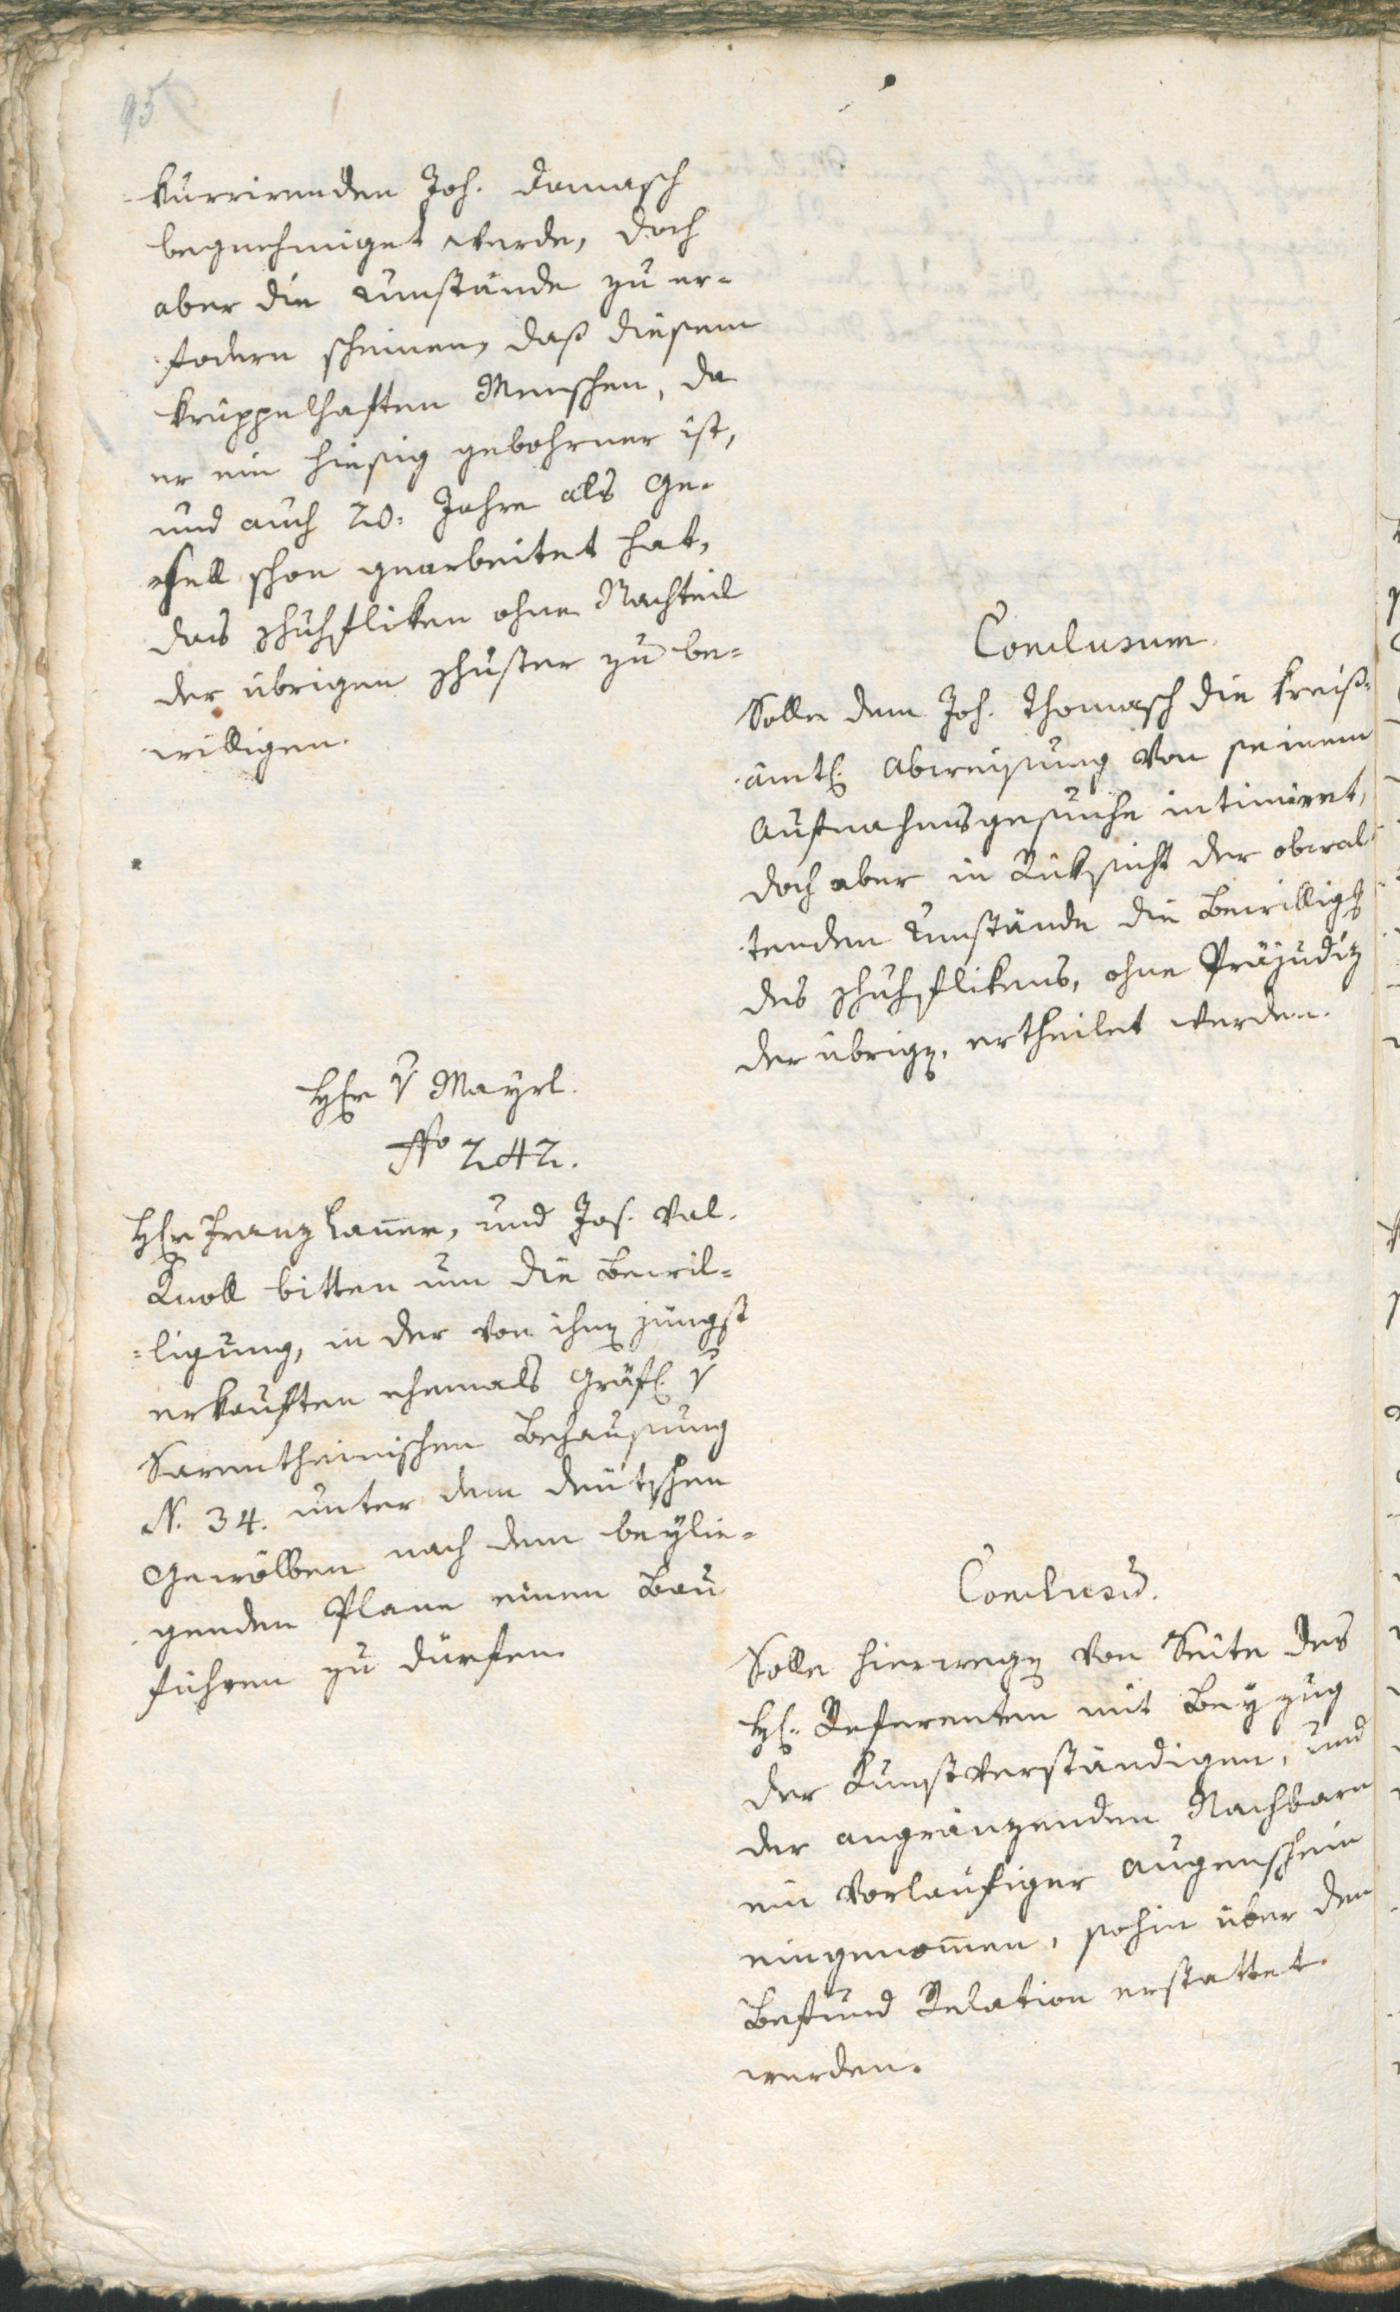 95
kurrirenden Joh. Damasch
begnehmiget werde, doch
aber die Umstände zu er-
fodern scheinen, daß diesem
kruppelhaften Menschen, da
er ein hiesig gebohrner ist,
und auch 20: Jahre als Ge-
sell schon gearbeitet hat,
das Schuhfliken ohne Nachteil
der übrigen Schuster zu be-
willigen.
Conclusum.
Solle dem Joh. Thomasch die kreiß-
ämtl. Abweisung von seinem
Aufnahmsgesuche intimiret,
doch aber in Rüksicht der obwal-
tenden Umstände die Bewilligg
des Schuhflikens, ohne Präjudiz
der übrigen, ertheilet werden.
Herr v Mayrl.
No 242.
Herr Franz Lañer, und Jos. Val.
Knoll bitten um die Bewil-
ligung, in der von ihnen jüngst
erkauften ehemals Gräfl. v
Sarentheinischen Behausung
N. 34. unter dem deutschen
Gewölben nach dem beylie-
genden Plane einen Bau
führen zu dürfen.
Conclusū.
Solle hierwegen von Seite des
H. Referenten mit Beyzug
der Kunstverständigen, und
der angränzenden Nachbarn
ein vorläufiger Augenschein
eingenom̄en, sohin über den
Befund Relation erstattet
werden.